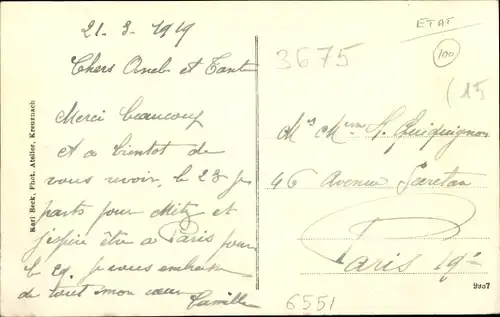 21-3-1919
Chers Oncle et Tante
Merci beaucoup
et a bientot de
vous revoir, le 28 je
parts pour Metz et
j'espère être a Paris pour
le 29. Je vous embrasse
de tout mon cœur
Camille
Karl Beck, Phot. Atelier, Kreuznach
ETAT
100
3675
(15
Mr Mme H. Quiquignon
46 Avenue Secretan
Paris 19e
9907
6551